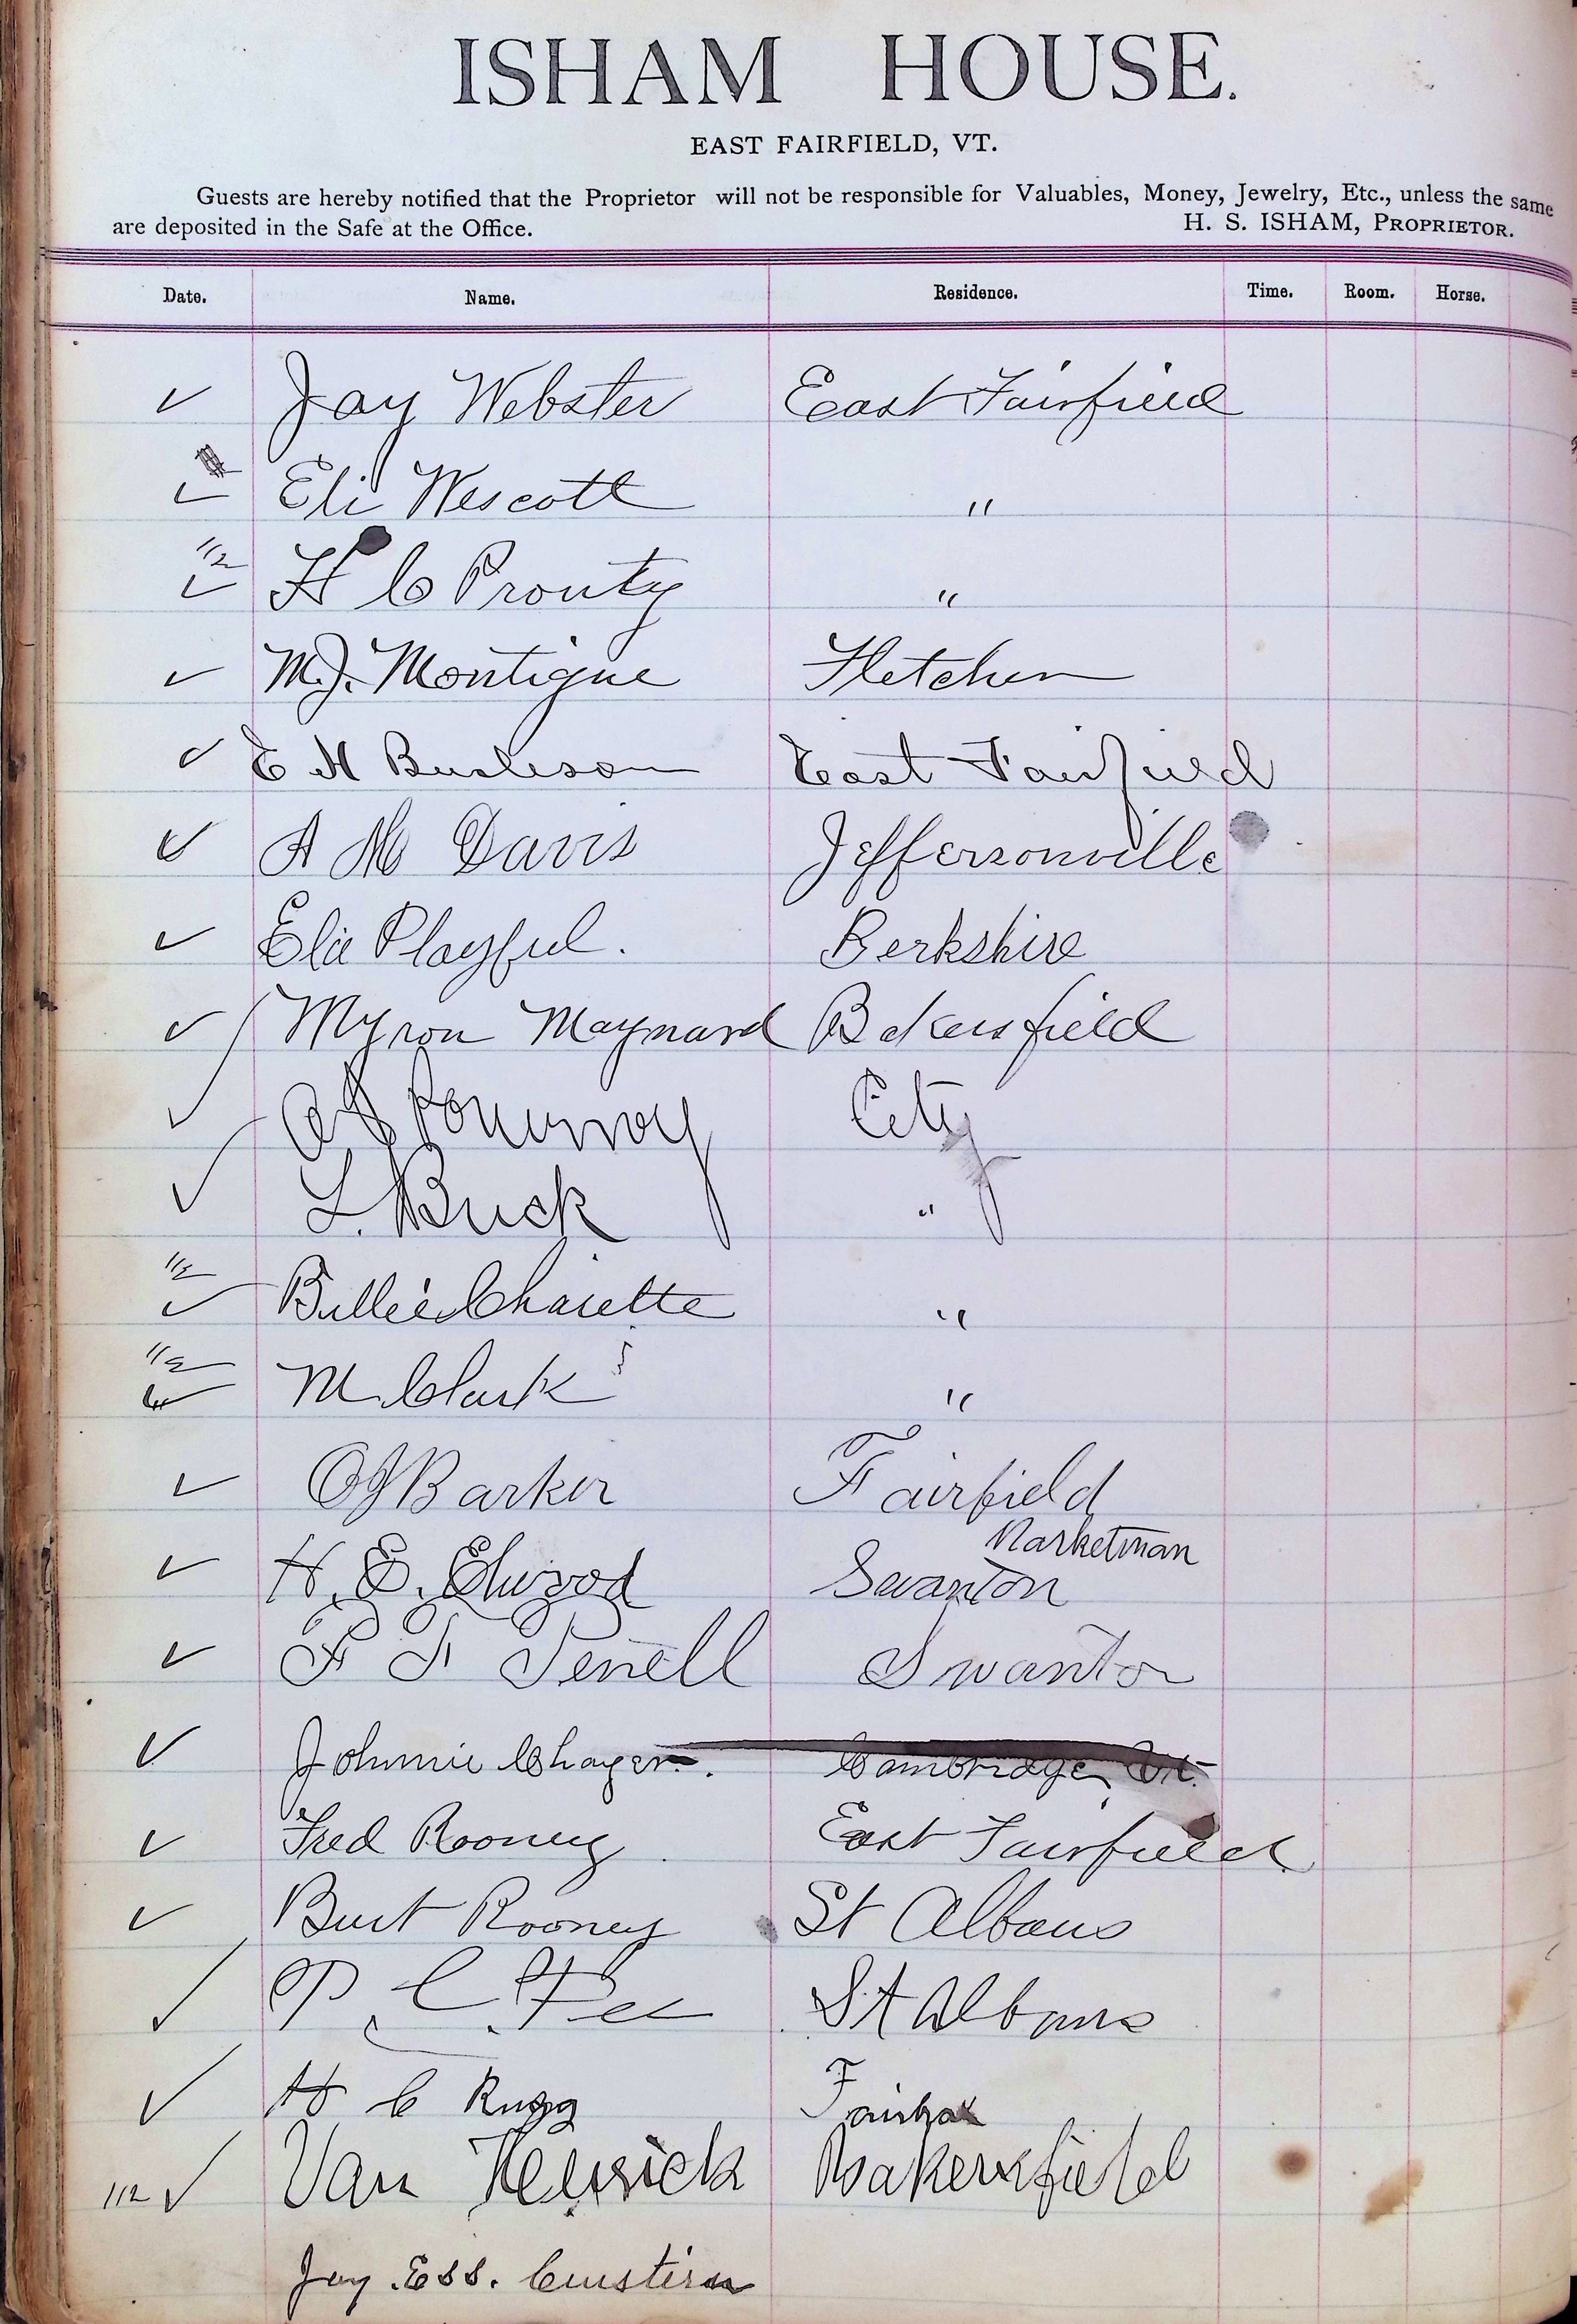 ISHAM HOUSE.
EAST FAIRFIELD, VT.
Guests are hereby notified that the Proprietor will not be responsible for Valuables, Money, Jewelry, Etc., unless the same
are deposited in the Safe at the Office. H. S. ISHAM, PROPRIETOR.
Date. Name. Residence. Time. Room. Horse.
✓ Jay Webster East Fairfield
✓ Eli Wescott "
1/2 ✓ H C Prouty "
✓ M.J. Montigue Fletcher
✓ E H Burleson East Fairfield
✓ A M Davis Jeffersonville
✓ Elie Playful. Berkshire
✓ Myron Maynard Bakersfield
✓ Pomerroy City
✓ L. Buck "
1/2 ✓ Billie Charette "
1/2 ✓ M. Clark "
✓ O J Barker Fairfield
Marketman
✓ H. E. Elwood Swanton
✓ P F Penell Swanton
✓ Johnnie Cambridge, Vt.
✓ Fred Rooney East Fairfield
✓ Burt Rooney St Albans
✓ P. C. Fee St Albans
✓ H C Rugg Fairfax
1/2 ✓ Van Bakersfield
Jay. Ess.